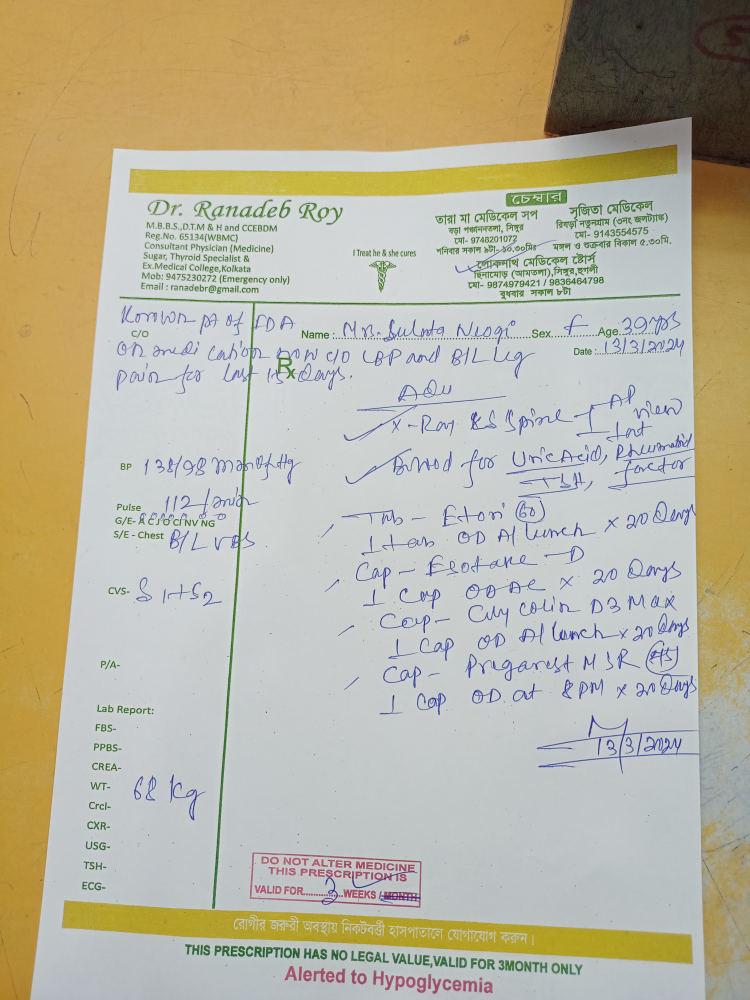 Dr. Ranadeb Roy
M.B.B.S.,D.T.M & H and CCEBDM
Reg.No. 65134(WBMC)
Consultant Physician (Medicine)
Sugar, Thyroid Specialist &
Ex.Medical College,Kolkata
Mob: 9475230272 (Emergency only)
Email : ranadebr@gmail.com
I Treat he & she cures
চেম্বার
তারা মা মেডিকেল সপ
বড়া পঞ্চাননতলা, সিঙ্গুর
মো- 9748201072
শনিবার সকাল ৯টা- ১০.৩০মিঃ
সৃজিতা মেডিকেল
রিষড়া নতুনগ্রাম (৩নং জলট্যাঙ্ক)
মো- 9143554575
মঙ্গল ও শুক্রবার বিকাল ৫.৩০মি.
লোকনাথ মেডিকেল ষ্টোর্স
(আমতলা),সিঙ্গুর,হুগলী
মো- 9874979421 / 9836464798
বুধবার সকাল ৮টা
Known pt of IDA
C/O
Name : Mrs. Neogi Sex F Age 39yrs
on medication now c/o LBP and B/L leg
Date : 13/3/2024
pain for last 15 Days.
Rx
Adv
X-Ray LS Spine AP view
Lat
Blood for Uric Acid, Rheumatoid
TSH, factor
BP 138/98 mm of Hg
Pulse 112/min
G/E- A C J O Cl NV NG
S/E - Chest B/L VBS
CVS- S1+S2
Tab - Etori 60
1 tab OD Al lunch x 20 Days
Cap - Esotake - D
1 Cap OD AC x 20 Days
Cap - D3 Max
1 Cap OD Al lunch x 20 Days
Cap - M SR 75
1 Cap OD at 8PM x 20 Days
13/3/2024
P/A-
Lab Report:
FBS-
PPBS-
CREA-
WT- 68 kg
Crcl-
CXR-
USG-
TSH-
ECG-
DO NOT ALTER MEDICINE
THIS PRESCRIPTION IS
VALID FOR 3 WEEKS / MONTH
রোগীর জরুরী অবস্থায় নিকটবর্ত্তী হাসপাতালে যোগাযোগ করুন।
THIS PRESCRIPTION HAS NO LEGAL VALUE,VALID FOR 3MONTH ONLY
Alerted to Hypoglycemia